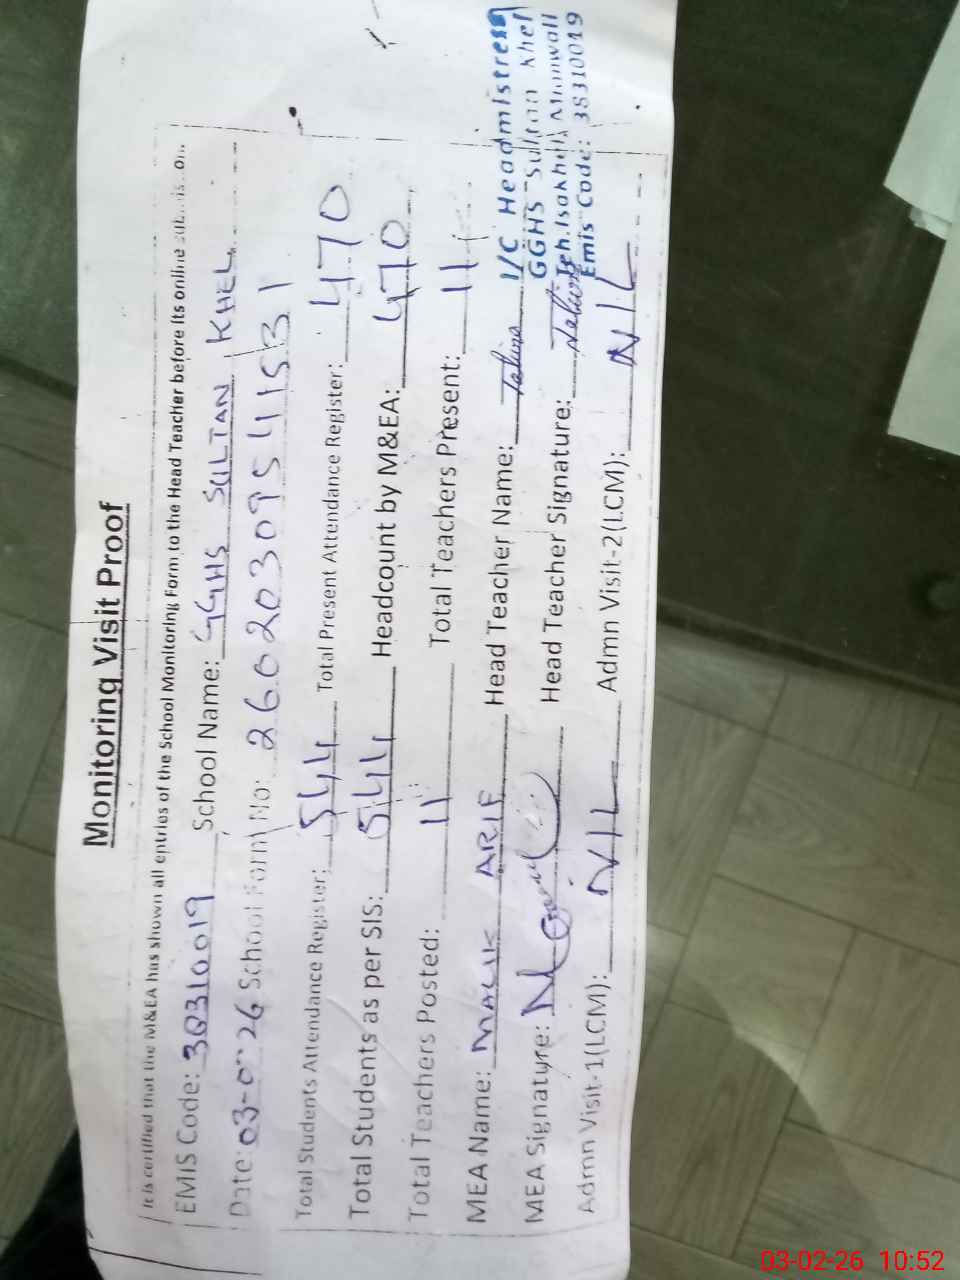 Monitoring Visit Proof
It is certified that the M&EA has shown all entries of the School Monitoring Form to the Head Teacher before its online
EMIS Code: 38310019 School Name: GGHS SULTAN KHEL
Date: 03-0 26 School Form No: 2602030954
Total Students Attendance Register: 544 Total Present Attendance Register: 470
Total Students as per SIS: 544 Headcount by M&EA: 470
Total Teachers Posted: 11 Total Teachers Present: 11
MEA Name: MALIK ARIF Head Teacher Name:
MEA Signature: Head Teacher Signature:
Admn Visit-1(LCM): NIL Admn Visit-2(LCM): NIL
I/C Headmistress
GGHS Sultan Khel
Teh. Isakhel Mianwali
Emis Code: 38310019
03-02-26 10:52